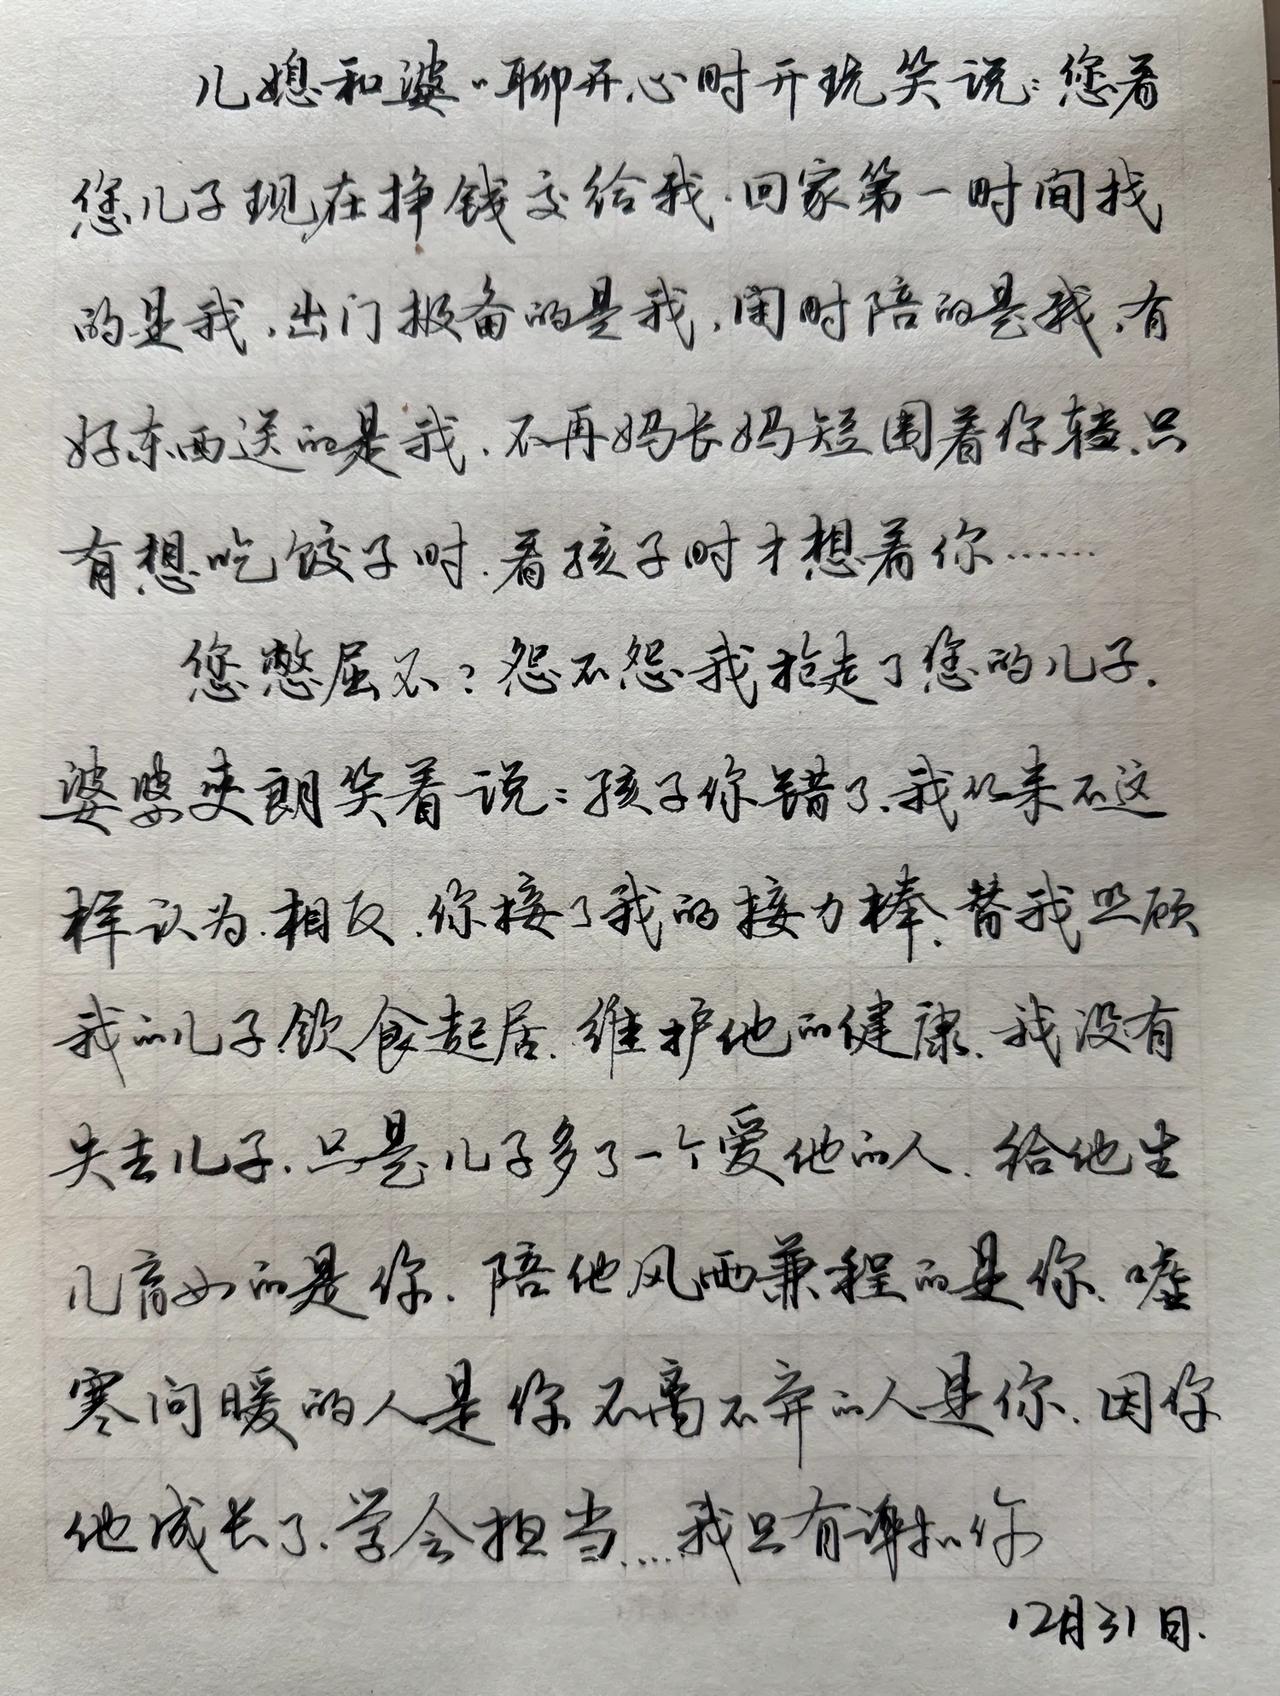 儿媳和婆〃聊开心时开玩笑说:您看
您儿子现在挣钱交给我.回家第一时间找
的是我.出门报备的是我.闲时陪的是我.有
好东西送的是我.不再妈长妈短围着你转.只
有想吃饺子时.看孩子时才想着你……
您憋屈不?怨不怨我抢走了您的儿子.
婆婆爽朗笑着说:孩子你错了.我从来不这
样认为.相反.你接了我的接力棒.替我照顾
我的儿子饮食起居.维护他的健康.我没有
失去儿子.只是儿子多了一个爱他的人.给他生
儿育女的是你.陪他风雨兼程的是你.嘘
寒问暖的人是你.不离不弃的人是你.因你
他成长了.学会担当....我只有谢和你
12月31日.